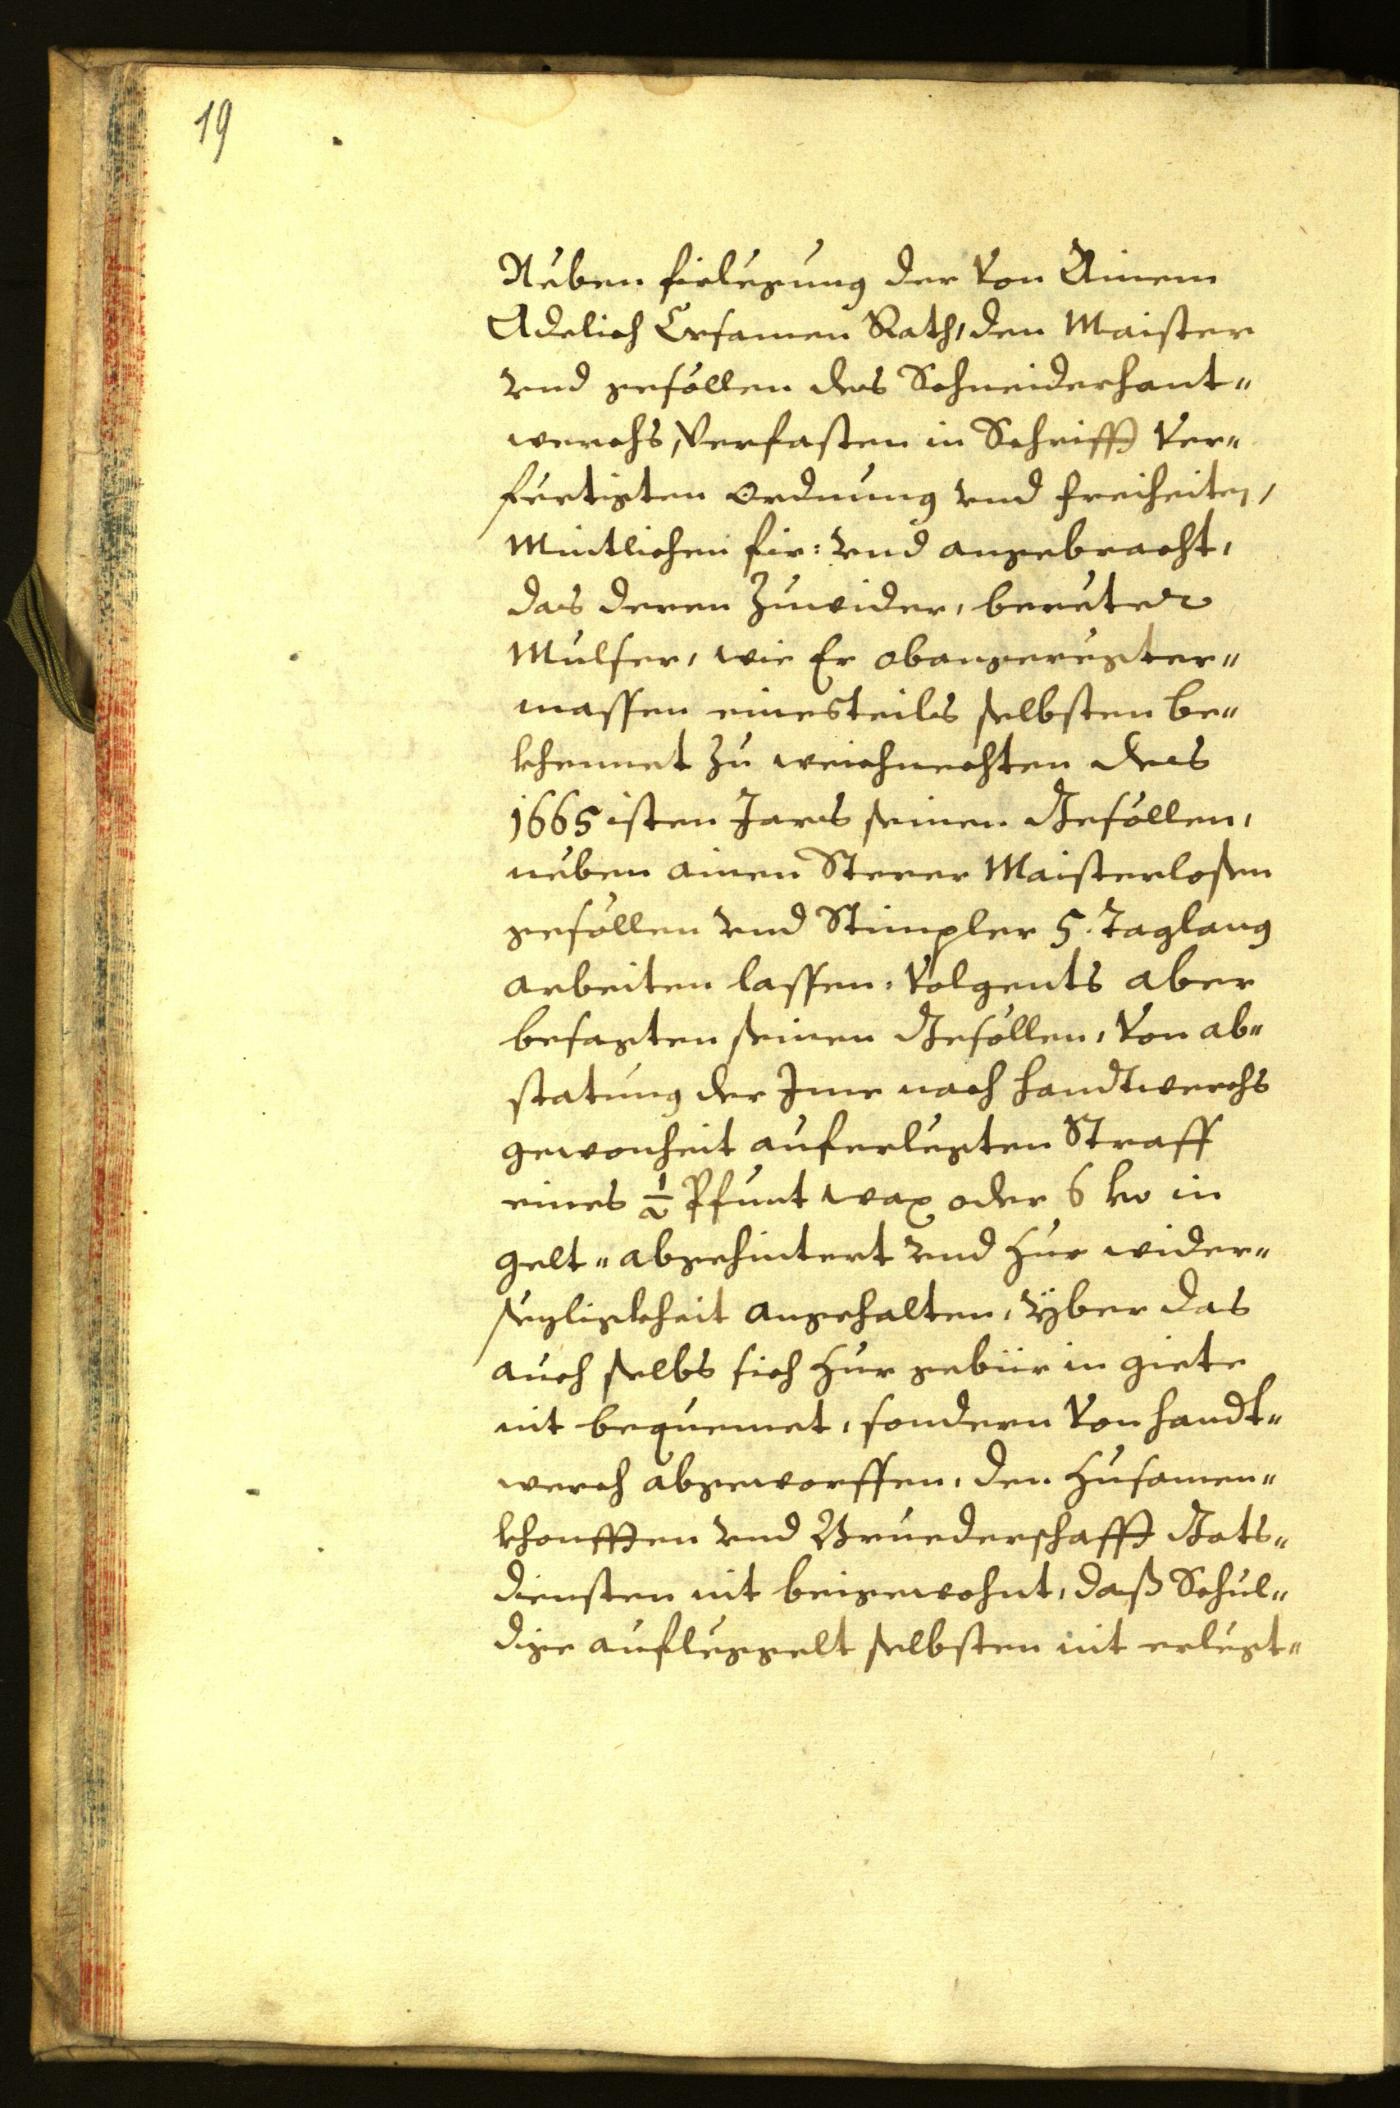 19
Neben firlegung der von Ainem
Adelich Ersamen Rath, den Maister
vnd gesöllen des Schneiderhant-
werchs, Verfasten in Schrifft Ver-
fertigten Ordnung vnd freiheiten,
Mintlichen fir: vnd angebracht,
das deren Zuwider, berüter
Mulser, wie Er obangeregter-
massen einesteils selbsten be-
khennet Zu weichnechten des
1665isten Jars seinen Gesöllen,
neben ainen Sterer Maisterlosen
gesöllen vnd Stimpler 5. Taglang
arbeiten lassen, Volgents aber
besagten seinen Gesöllen, Von ab-
statung der Ime nach handtwerchs
gewonheit auferlegten Straff
eines ½ Pfunt wax oder 6 kr in
gelt- abgehintert vnd zur wider-
sezligkheit angehalten, yber das
auch selbs sich zur gebür in giete
nit bequemet, sondern Von handt-
werch abgeworffen, den zusamen-
khonfften vnd Bruederschafft Gots-
diensten nit beigewohnt, daß Schul-
dige aufleggelt selbsten nit erlegt-